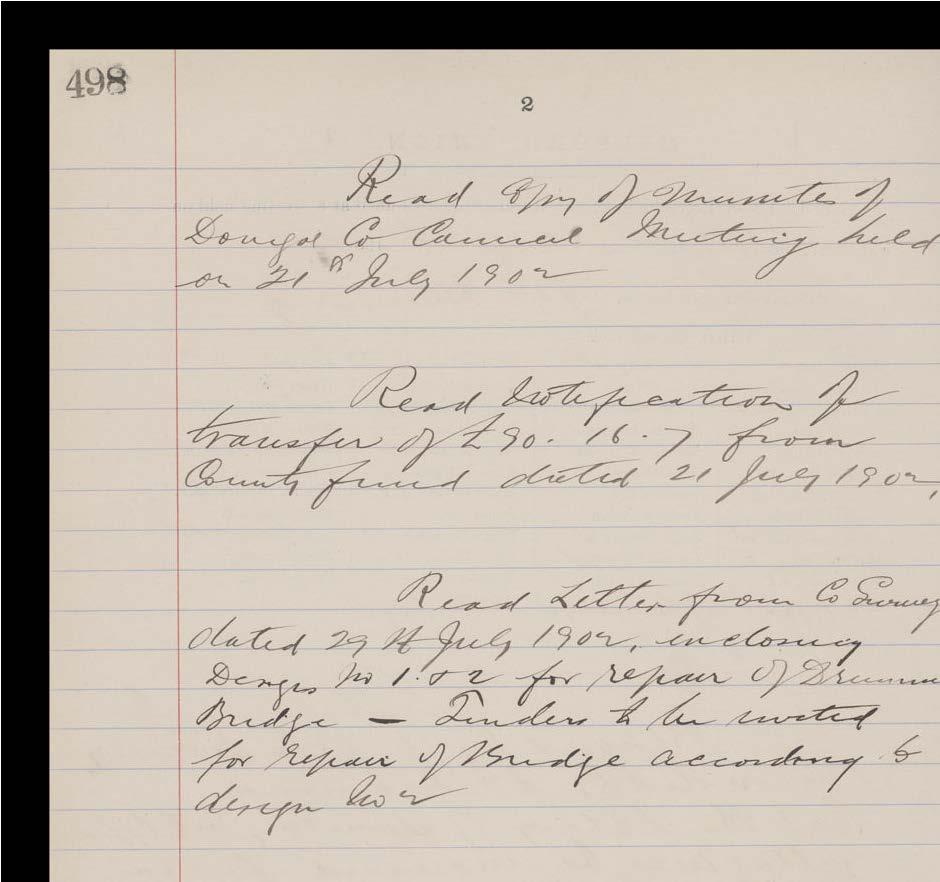 498
2
Read Copy of Minutes of
Donegal Co Council Meeting held
on 21st July 1902
Read Notification of
transfer of £90. 16. 7 from
County fund dated 21 July 1902,
Read Letter from Co Survey
dated 29th July 1902, inclosing
Designs No 1 & 2 for repair of
Bridge — Tenders to be invited
for repair of Bridge according to
design No 2